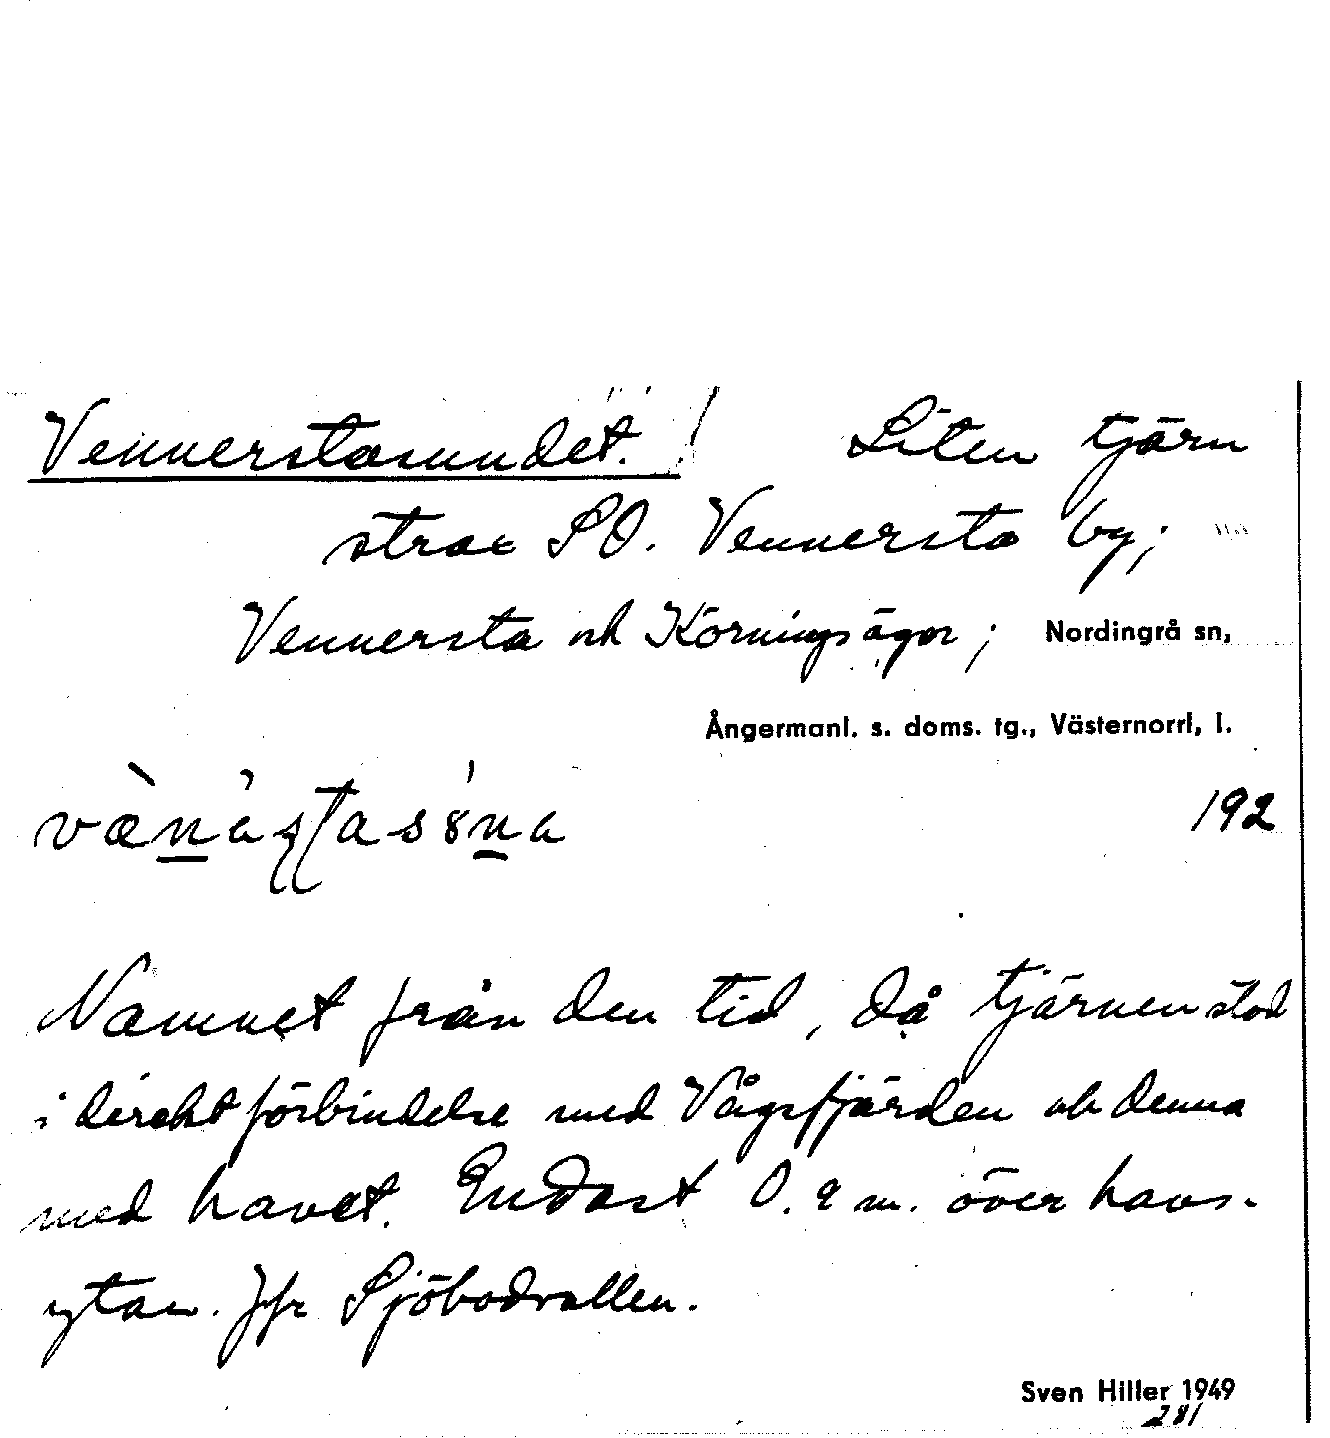 Vennerstasundet. Liten tjärn
strax SO. Vennersta by;
Vennersta och Körnings ägor; Nordingrå sn,
Ångermanl. s. doms. tg., Västernorrl, l.
192
Namnet från den tid, då tjärnen stod
i direkt förbindelse med Vågsfjärden och denna
med havet. Endast 0.9 m. över havs-
ytan. Jfr Sjöbodvallen.
Sven Hiller 1949
281